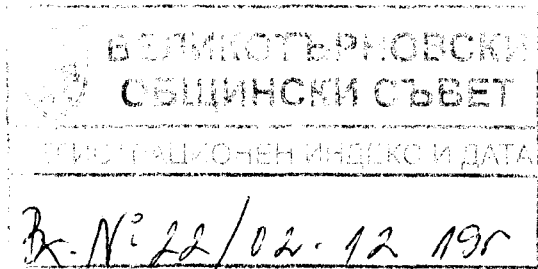 ВЕЛИКОТЪРНОВСКИ
ОБЩИНСКИ СЪВЕТ
РЕГИСТРАЦИОНЕН ИНДЕКС И ДАТА
Вх. № 22/02.12.19г